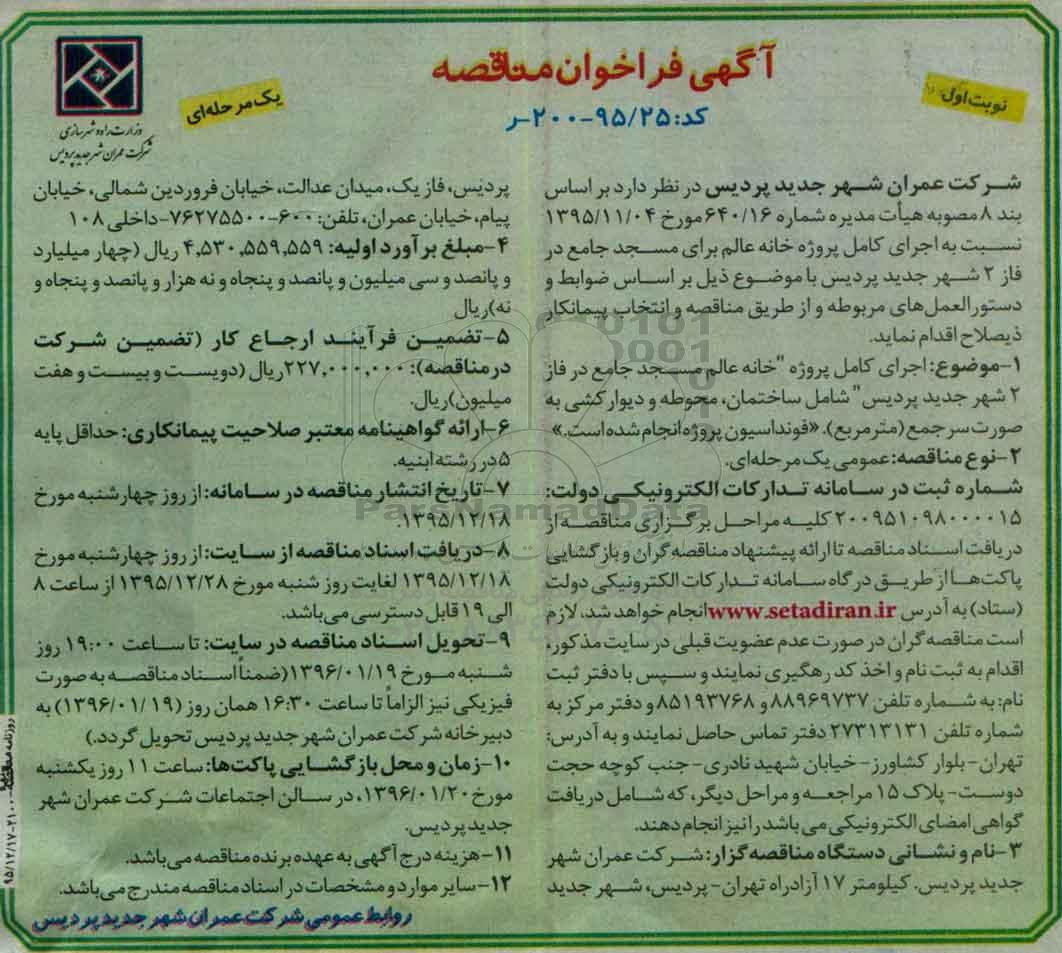 آگهی فراخوان مناقصه
کد: ۹۵/۲۵-۲۰۰-ر
نوبت اول
یک مرحله‌ای
وزارت راه و شهرسازی
شرکت عمران شهر جدید پردیس
شرکت عمران شهر جدید پردیس در نظر دارد بر اساس
بند ۸ مصوبه هیأت مدیره شماره ۶۴۰/۱۶ مورخ ۱۳۹۵/۱۱/۰۴
نسبت به اجرای کامل پروژه خانه عالم برای مسجد جامع در
فاز ۲ شهر جدید پردیس با موضوع ذیل بر اساس ضوابط و
دستورالعمل‌های مربوطه و از طریق مناقصه و انتخاب پیمانکار
ذیصلاح اقدام نماید.
۱-موضوع: اجرای کامل پروژه "خانه عالم مسجد جامع در فاز
۲ شهر جدید پردیس" شامل ساختمان، محوطه و دیوارکشی به
صورت سرجمع (مترمربع). «فونداسیون پروژه انجام شده است.»
۲-نوع مناقصه: عمومی یک مرحله‌ای.
شماره ثبت در سامانه تدارکات الکترونیکی دولت:
۲۰۰۹۵۱۰۹۸۰۰۰۰۱۵ کلیه مراحل برگزاری مناقصه از
دریافت اسناد مناقصه تا ارائه پیشنهاد مناقصه‌گران و بازگشایی
پاکت‌ها از طریق درگاه سامانه تدارکات الکترونیکی دولت
(ستاد) به آدرس www.setadiran.ir انجام خواهد شد، لازم
است مناقصه‌گران در صورت عدم عضویت قبلی در سایت مذکور،
اقدام به ثبت نام و اخذ کد رهگیری نمایند و سپس با دفتر ثبت
نام: به شماره تلفن ۸۸۹۶۹۷۳۷ و ۸۵۱۹۳۷۶۸ و دفتر مرکز به
شماره تلفن ۲۷۳۱۳۱۳۱ دفتر تماس حاصل نمایند و به آدرس:
تهران- بلوار کشاورز- خیابان شهید نادری- جنب کوچه حجت
دوست- پلاک ۱۵ مراجعه و مراحل دیگر، که شامل دریافت
گواهی امضای الکترونیکی می باشد را نیز انجام دهند.
۳-نام و نشانی دستگاه مناقصه گزار: شرکت عمران شهر
جدید پردیس. کیلومتر ۱۷ آزادراه تهران- پردیس، شهر جدید
پردیس، فاز یک، میدان عدالت، خیابان فروردین شمالی، خیابان
پیام، خیابان عمران، تلفن: ۶۰۰-۷۶۲۷۵۵۰۰-داخلی ۱۰۸
۴-مبلغ برآورد اولیه: ۴,۵۳۰,۵۵۹,۵۵۹ ریال (چهار میلیارد
و پانصد و سی میلیون و پانصد و پنجاه و نه هزار و پانصد و پنجاه و
نه) ریال
۵-تضمین فرآیند ارجاع کار (تضمین شرکت
در مناقصه): ۲۲۷,۰۰۰,۰۰۰ ریال (دویست و بیست و هفت
میلیون) ریال.
۶-ارائه گواهینامه معتبر صلاحیت پیمانکاری: حداقل پایه
۵ در رشته ابنیه.
۷-تاریخ انتشار مناقصه در سامانه: از روز چهارشنبه مورخ
۱۳۹۵/۱۲/۱۸.
۸-دریافت اسناد مناقصه از سایت: از روز چهارشنبه مورخ
۱۳۹۵/۱۲/۱۸ لغایت روز شنبه مورخ ۱۳۹۵/۱۲/۲۸ از ساعت ۸
الی ۱۹ قابل دسترسی می‌باشد.
۹-تحویل اسناد مناقصه در سایت: تا ساعت ۱۹:۰۰ روز
شنبه مورخ ۱۳۹۶/۰۱/۱۹ (ضمناً اسناد مناقصه به صورت
فیزیکی نیز الزاماً تا ساعت ۱۶:۳۰ همان روز (۱۳۹۶/۰۱/۱۹) به
دبیرخانه شرکت عمران شهر جدید پردیس تحویل گردد.)
۱۰-زمان و محل بازگشایی پاکت‌ها: ساعت ۱۱ روز یکشنبه
مورخ ۱۳۹۶/۰۱/۲۰، در سالن اجتماعات شرکت عمران شهر
جدید پردیس.
۱۱-هزینه درج آگهی به عهده برنده مناقصه می‌باشد.
۱۲-سایر موارد و مشخصات در اسناد مناقصه مندرج می‌باشد.
روابط عمومی شرکت عمران شهر جدید پردیس
ParsNamadData
روزنامه ۲۱۰۰-۹۵/۱۲/۱۷